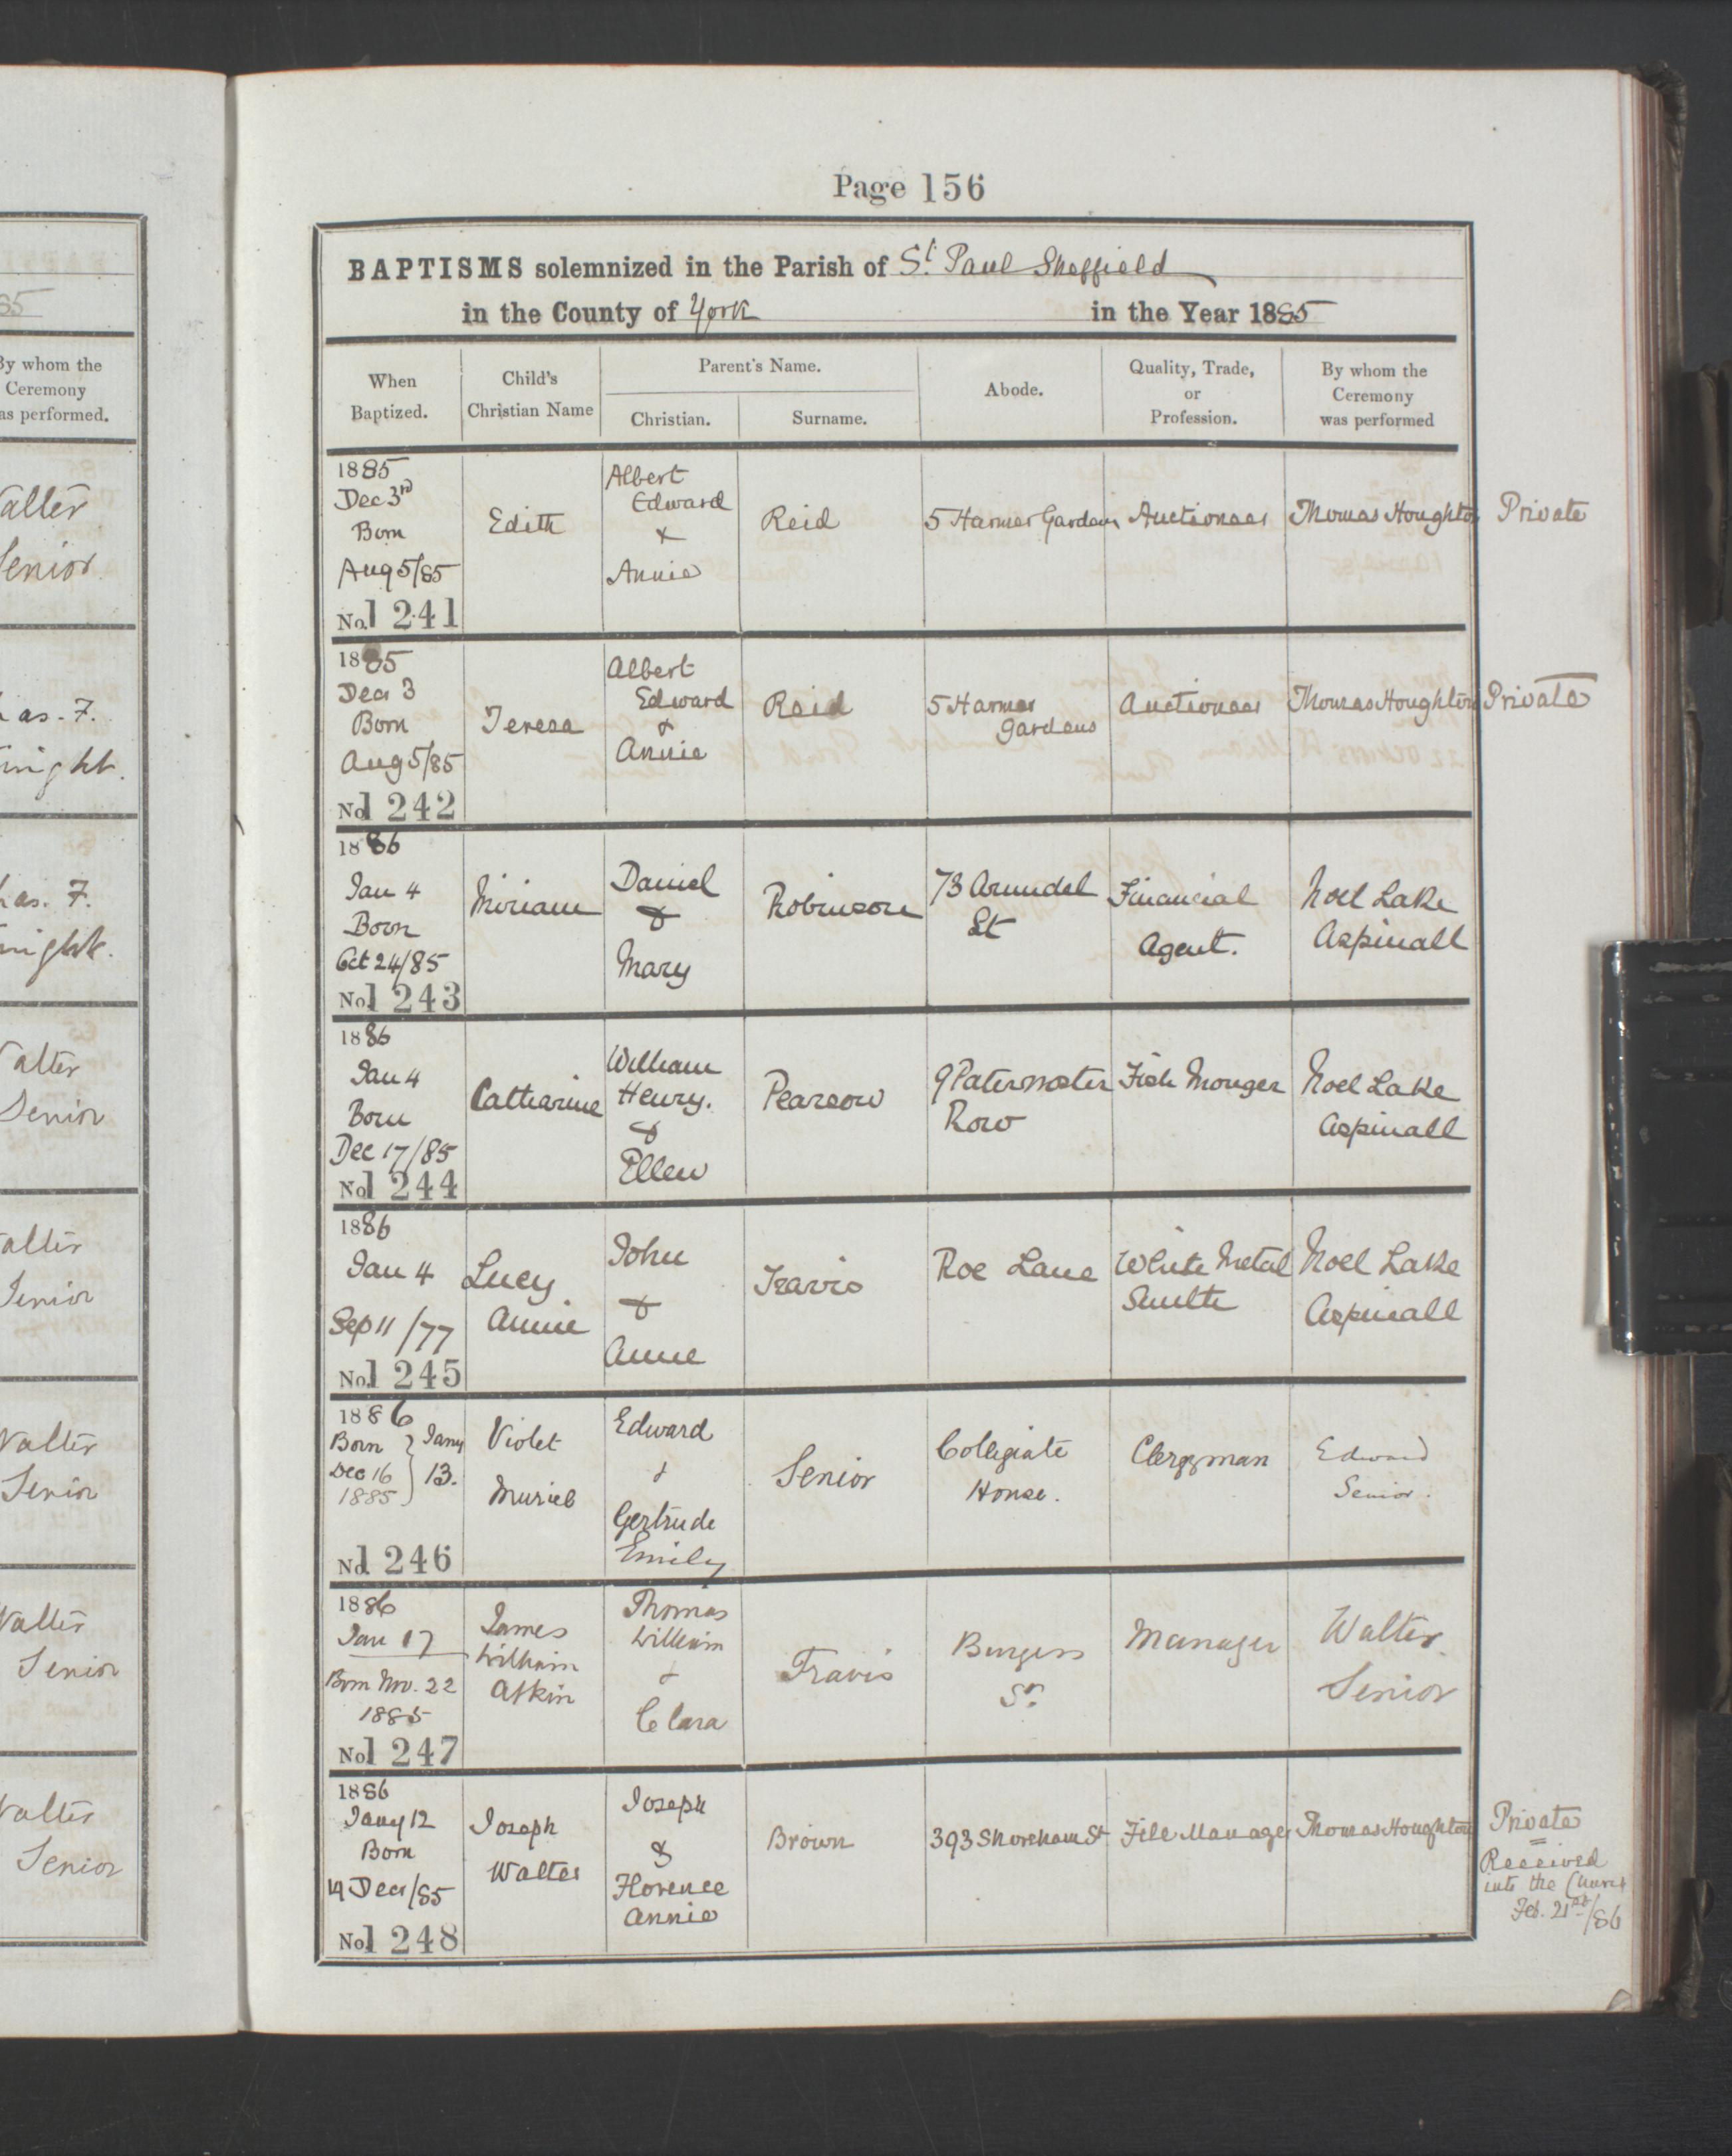 85
By whom the
Ceremony
as performed.
Walter
Senior
has. F.
Knight.
has. F.
Knight.
Walter
Senior
Walter
Senior
Walter
Senior
Walter
Senior
Walter
Senior
Page 156
BAPTISMS solemnized in the Parish of St. Paul Sheffield
in the County of York in the Year 1885
When
Baptized.
Child's
Christian Name
Parent's Name.
Christian.
Surname.
Abode.
Quality, Trade,
or
Profession.
By whom the
Ceremony
was performed
1885
Dec 3rd
Born
Aug 5/85
No. 1241
Edith
Albert
Edward
&
Annie
Reid
5 Harmer Gardens
Auctioneer
Thomas Houghton
Private
1885
Dec 3
Born
Aug 5/85
No. 1242
Teresa
Albert
Edward
&
Annie
Reid
5 Harmer
Gardens
Auctioneer
Thomas Houghton
Private
1886
Jan 4
Born
Oct 24/85
No. 1243
Miriam
Daniel
&
Mary
Robinson
73 Arundel
St
Financial
Agent.
Noel Lake
Aspinall
1886
Jan 4
Born
Dec 17/85
No. 1244
Catharine
William
Henry.
&
Ellen
Pearson
9 Paternoster
Row
Fish Monger
Noel Lake
Aspinall
1886
Jan 4
Sep 11/77
No. 1245
Lucy
Annie
John
&
Anne
Travis
Roe Lane
White Metal
Smith
Noel Lake
Aspinall
1886
Born } Jany
Dec 16 } 13.
1885
No. 1246
Violet
Muriel
Edward
&
Gertrude
Emily
Senior
Collegiate
House.
Clergyman
Edward
Senior.
1886
Jan 17
Born Nov. 22
1885
No. 1247
James
William
Atkin
Thomas
William
&
Clara
Travis
Burgess
St.
Manager
Walter
Senior
1886
Jany 12
Born
14 Decr/85
No. 1248
Joseph
Walter
Joseph
&
Florence
Annie
Brown
393 Shoreham St
File Manager
Thomas Houghton
Private
Received
into the Church
Feb. 21st/86